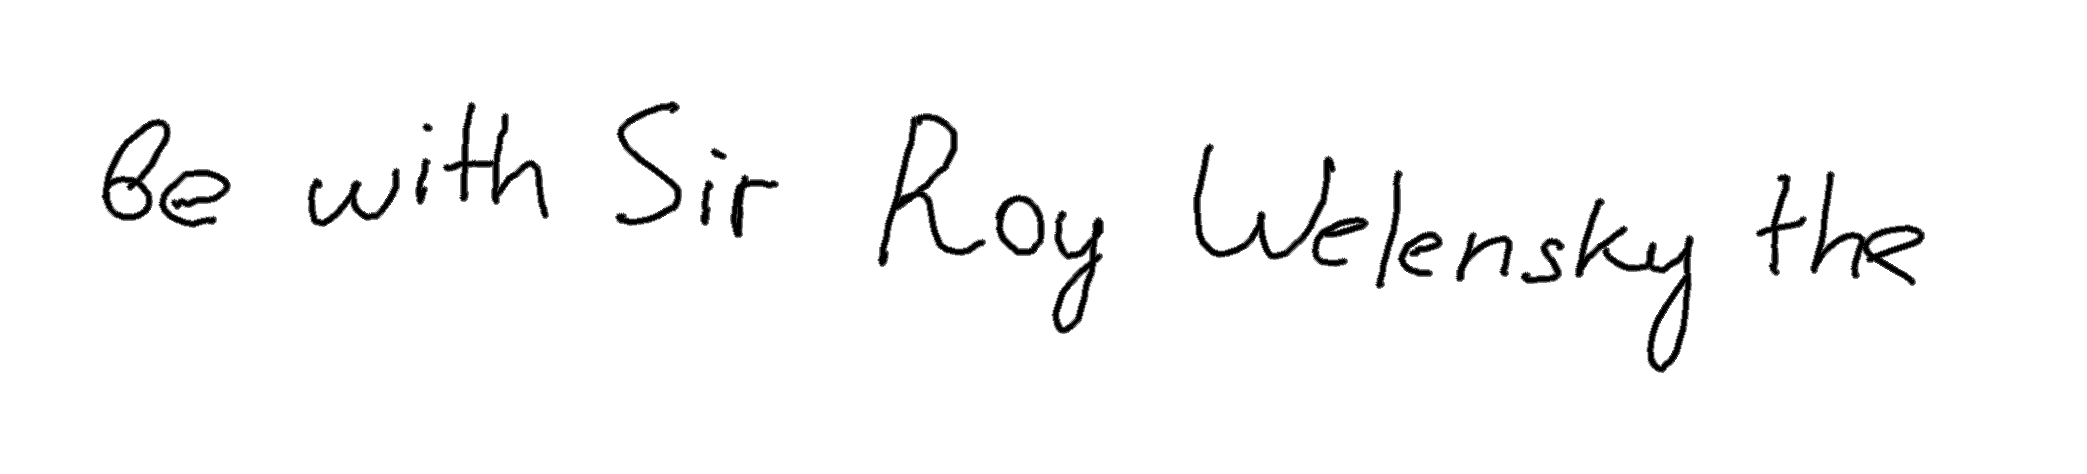 be with Sir Roy Welensky the